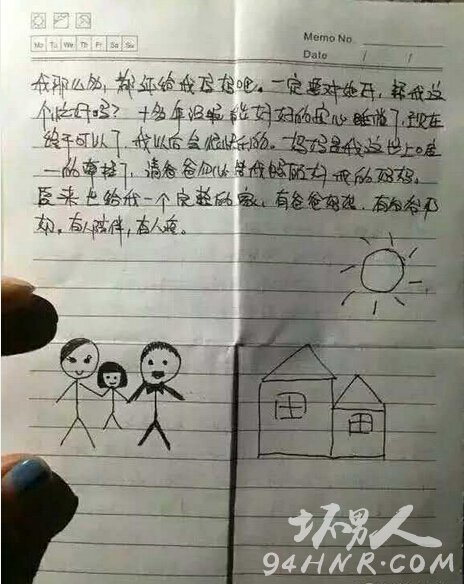 Memo No.
Mo Tu We Th Fr Sa Su
Date / /
我那么多，都还给我妈妈吧。一定要对她好，替我这
个 好吗？十多年没 能好好的安心睡觉了，现在
终于可以了，我以后会很快乐的。妈妈是我这世上唯
一的牵挂了，请爸爸 替我照顾好我的妈妈，
来 也给我一个完整的家，有爸爸妈妈，有爷爷奶
奶。有人陪伴，有人疼。
坏男人
94HNR.COM